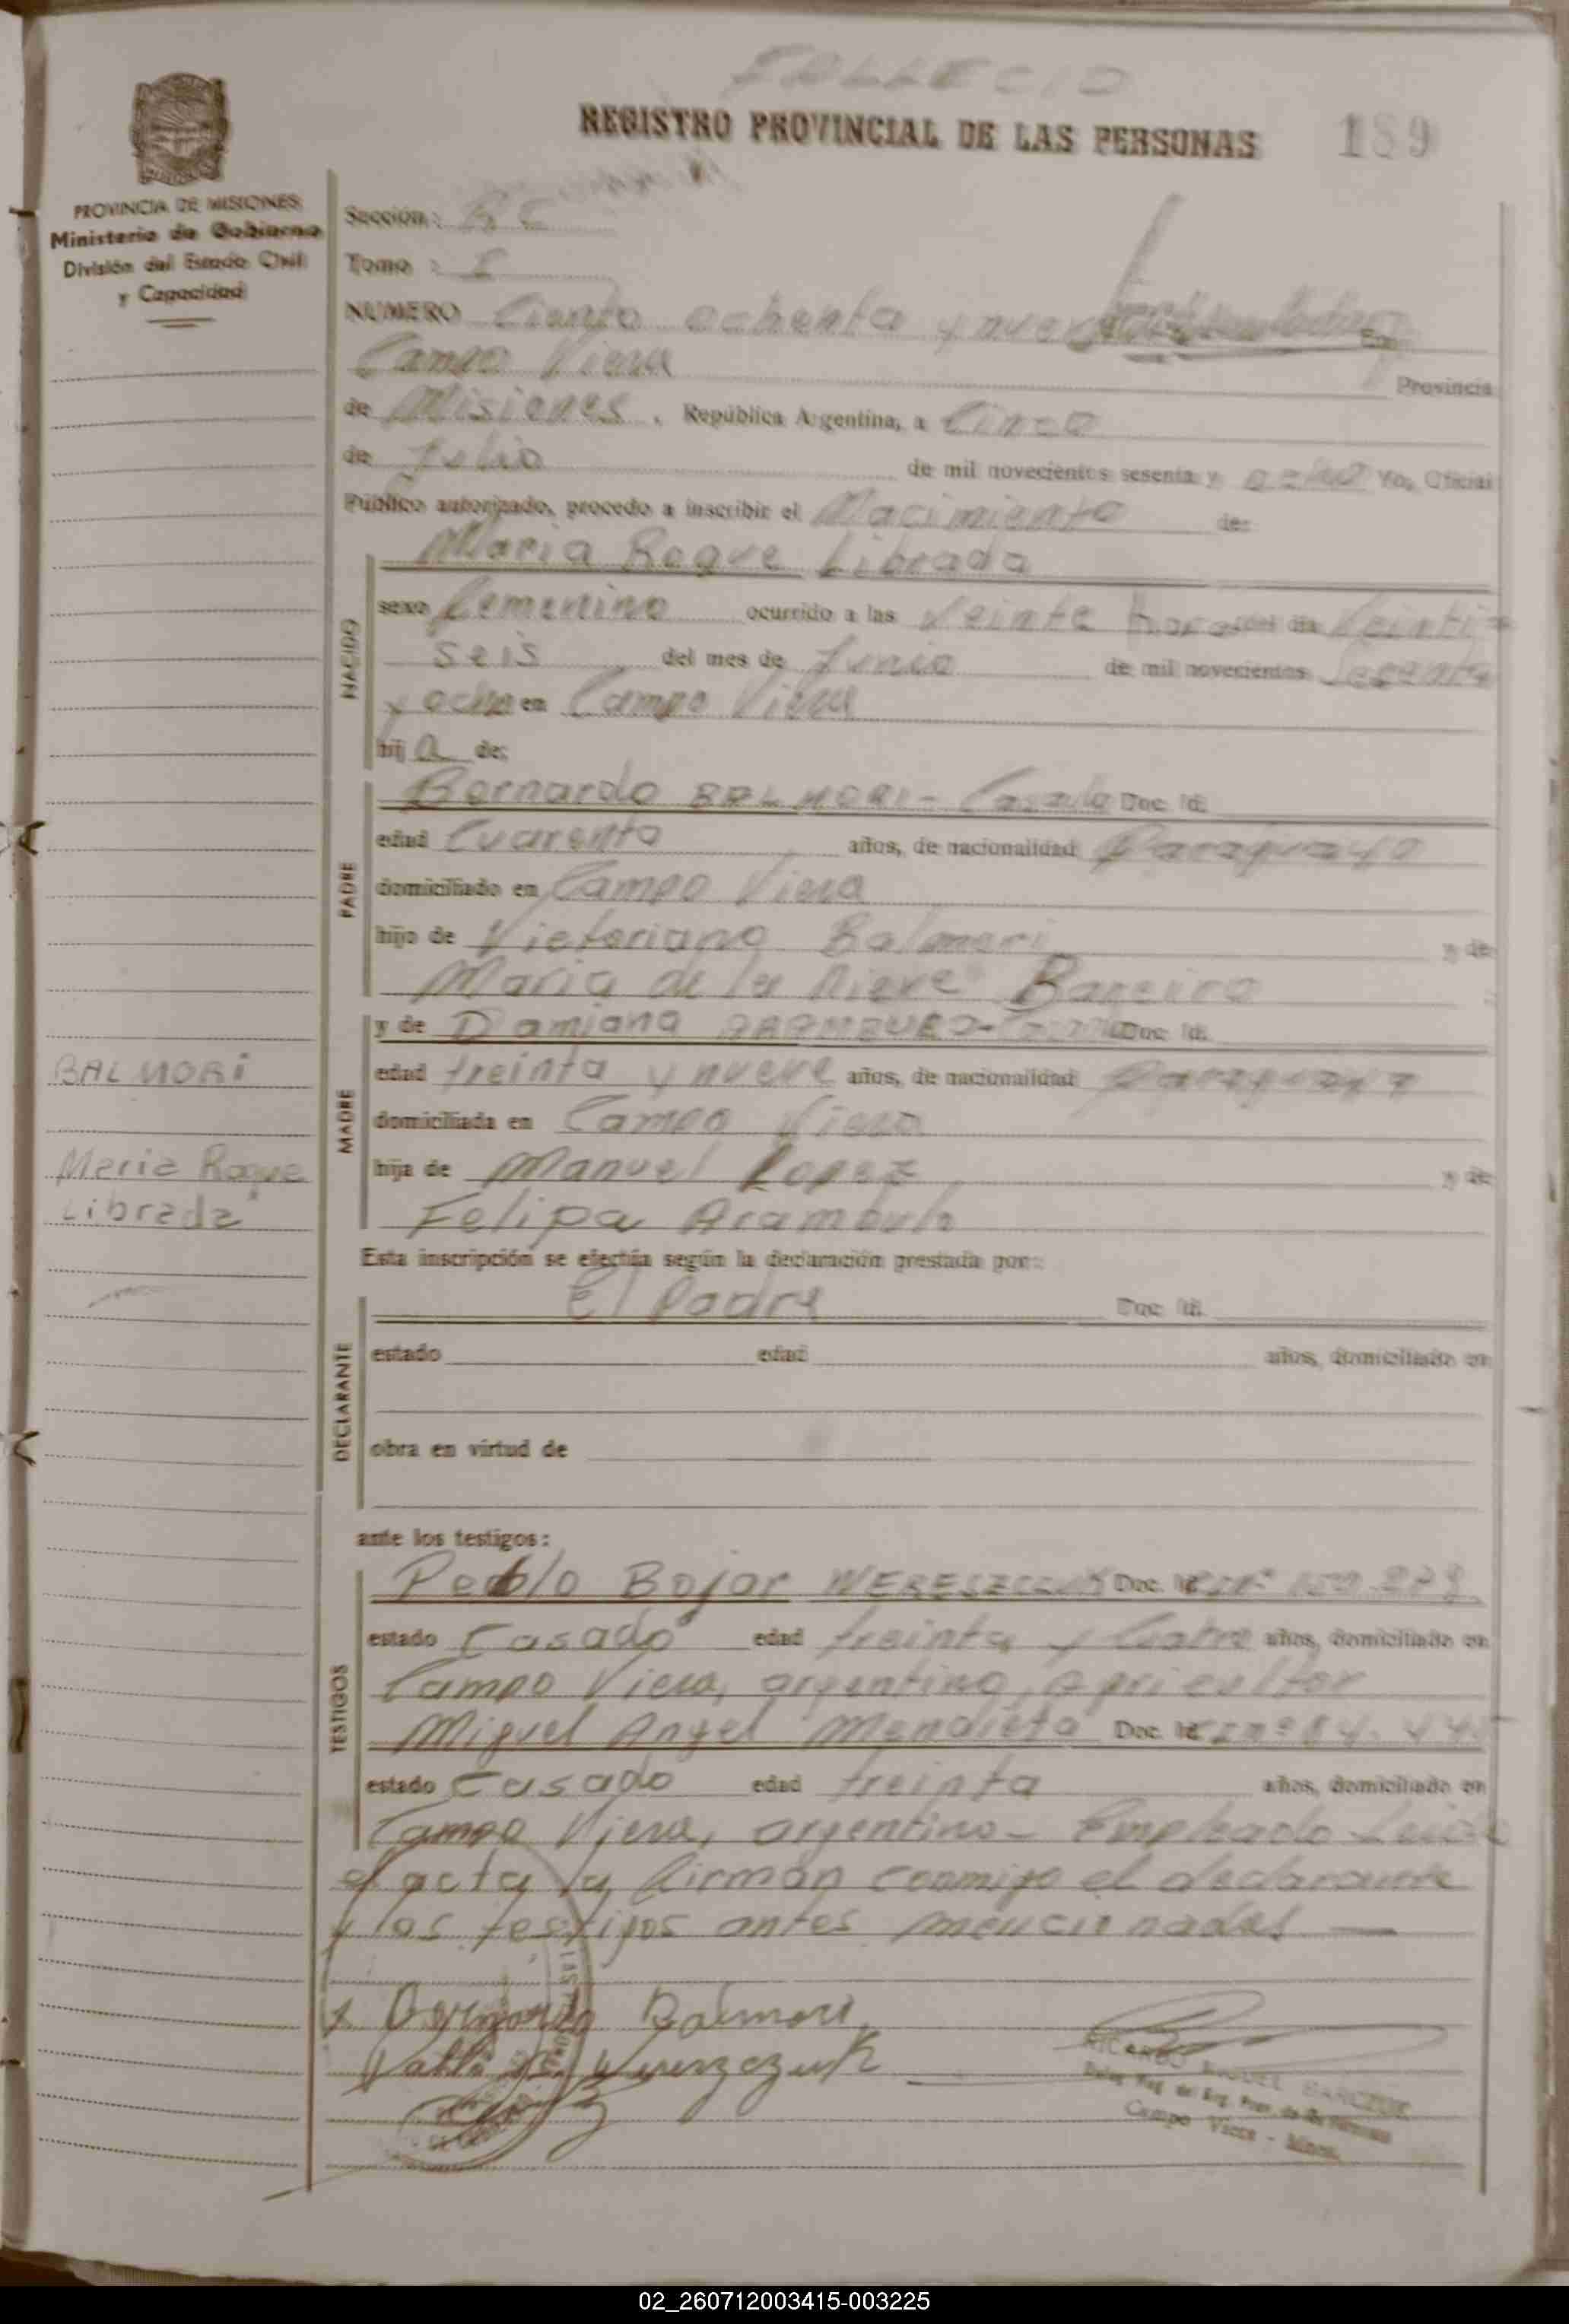 FALLECIO
REGISTRO PROVINCIAL DE LAS PERSONAS 189
PROVINCIA DE MISIONES
Ministerio de Gobierno
División del Estado Civil
y Capacidad
Sección: 
Tomo : I
NUMERO Ciento ochenta y nueve En
Campo Viera Provincia
de Misiones, República Argentina, a Cinco
de Julio de mil novecientos sesenta y ocho Yo, Oficial
Público autorizado, procedo a inscribir el Nacimiento de:
Maria Roque Librada
NACIDO
sexo femenino ocurrido a las Veinte horas del día Veinti
seis del mes de Junio de mil novecientos Sesenta
y ocho en Campo Viera
hij a de:
PADRE
Bernardo BALMORI - Casado Doc. Id.
edad Cuarenta años, de nacionalidad Paraguayo
domiciliado en Campo Viera
hijo de Victoriano Balmori y de
Maria de la Nieve Bareiro
MADRE
y de Damiana Doc. Id.
edad treinta y nueve años, de nacionalidad Paraguaya
domiciliada en Campo Viera
hija de Manuel Lopez y de
Felipa Arambulo
BALMORI
Maria Roque
Librada
Esta inscripción se efectúa según la declaración prestada por:
DECLARANTE
El Padre Doc. Id.
estado edad años, domiciliado en
obra en virtud de
ante los testigos:
TESTIGOS
Pablo Bojar WERESZCZUK Doc. Id.
estado Casado edad treinta y Cuatro años, domiciliado en
Campo Viera, argentino, Agricultor
Miguel Angel Mendieta Doc. Id.
estado Casado edad treinta años, domiciliado en
Campo Viera, argentino - Empleado Leida
el acta la firman conmigo el declarante
y los testigos antes mencionados —
x Bernardo Balmori
Pablo B. Wereszczuk
RICARDO MIGUEL
Campo Viera - Mnes.
02_260712003415-003225